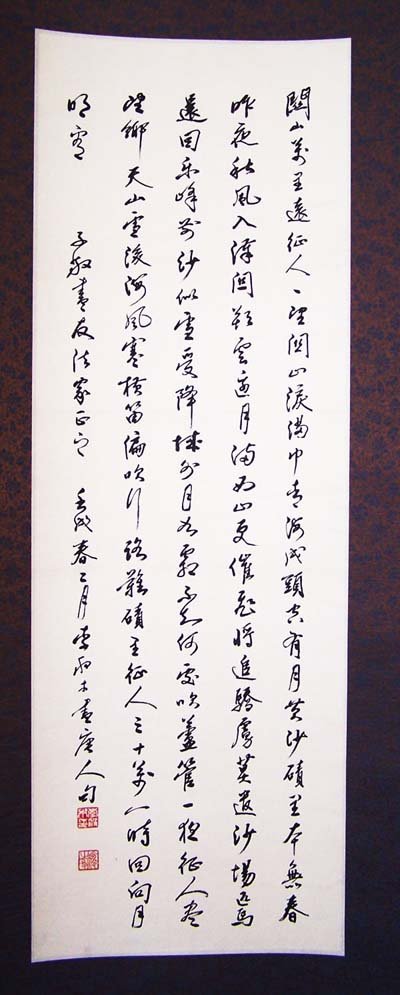 關山萬里遠征人一望關山淚滿巾青海戍頭空有月黃沙磧里本無春
昨夜秋風入漢關朔雲邊月滿西山更催飛將追驕虜莫遣沙場匹馬
還回樂峰前沙似雪受降城外月如霜不知何處吹蘆管一夜征人盡
望鄉天山雪後海風寒橫笛偏吹行路難磧里征人三十萬一時回向月
明看 子敬書友法家正之 壬戌春二月李木書唐人句